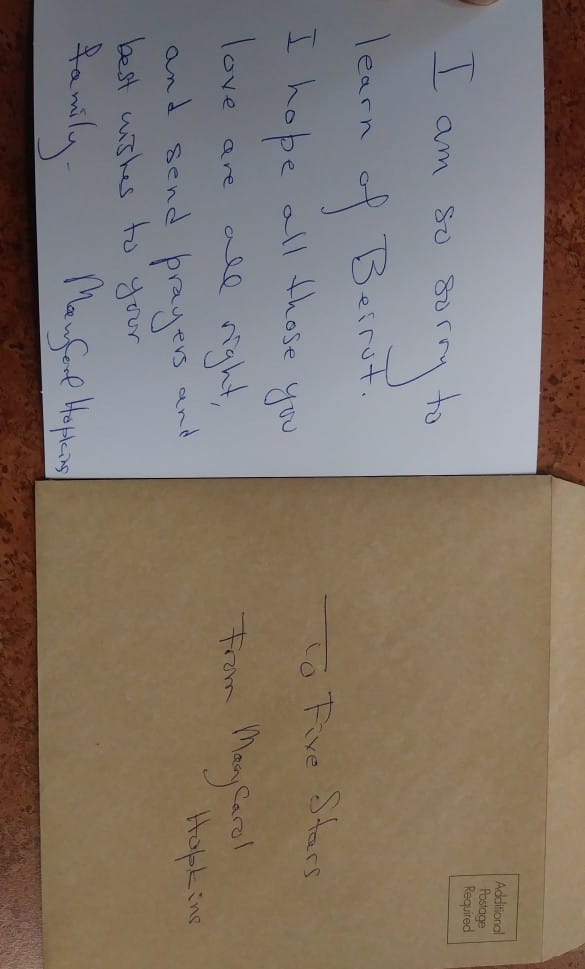 I am so sorry to
learn of Beirut.
I hope all those you
love are all right,
and send prayers and
best wishes to your
family.
MaryCarol Hopkins
To Five Stars
From MaryCarol
Hopkins
Additional
Postage
Required